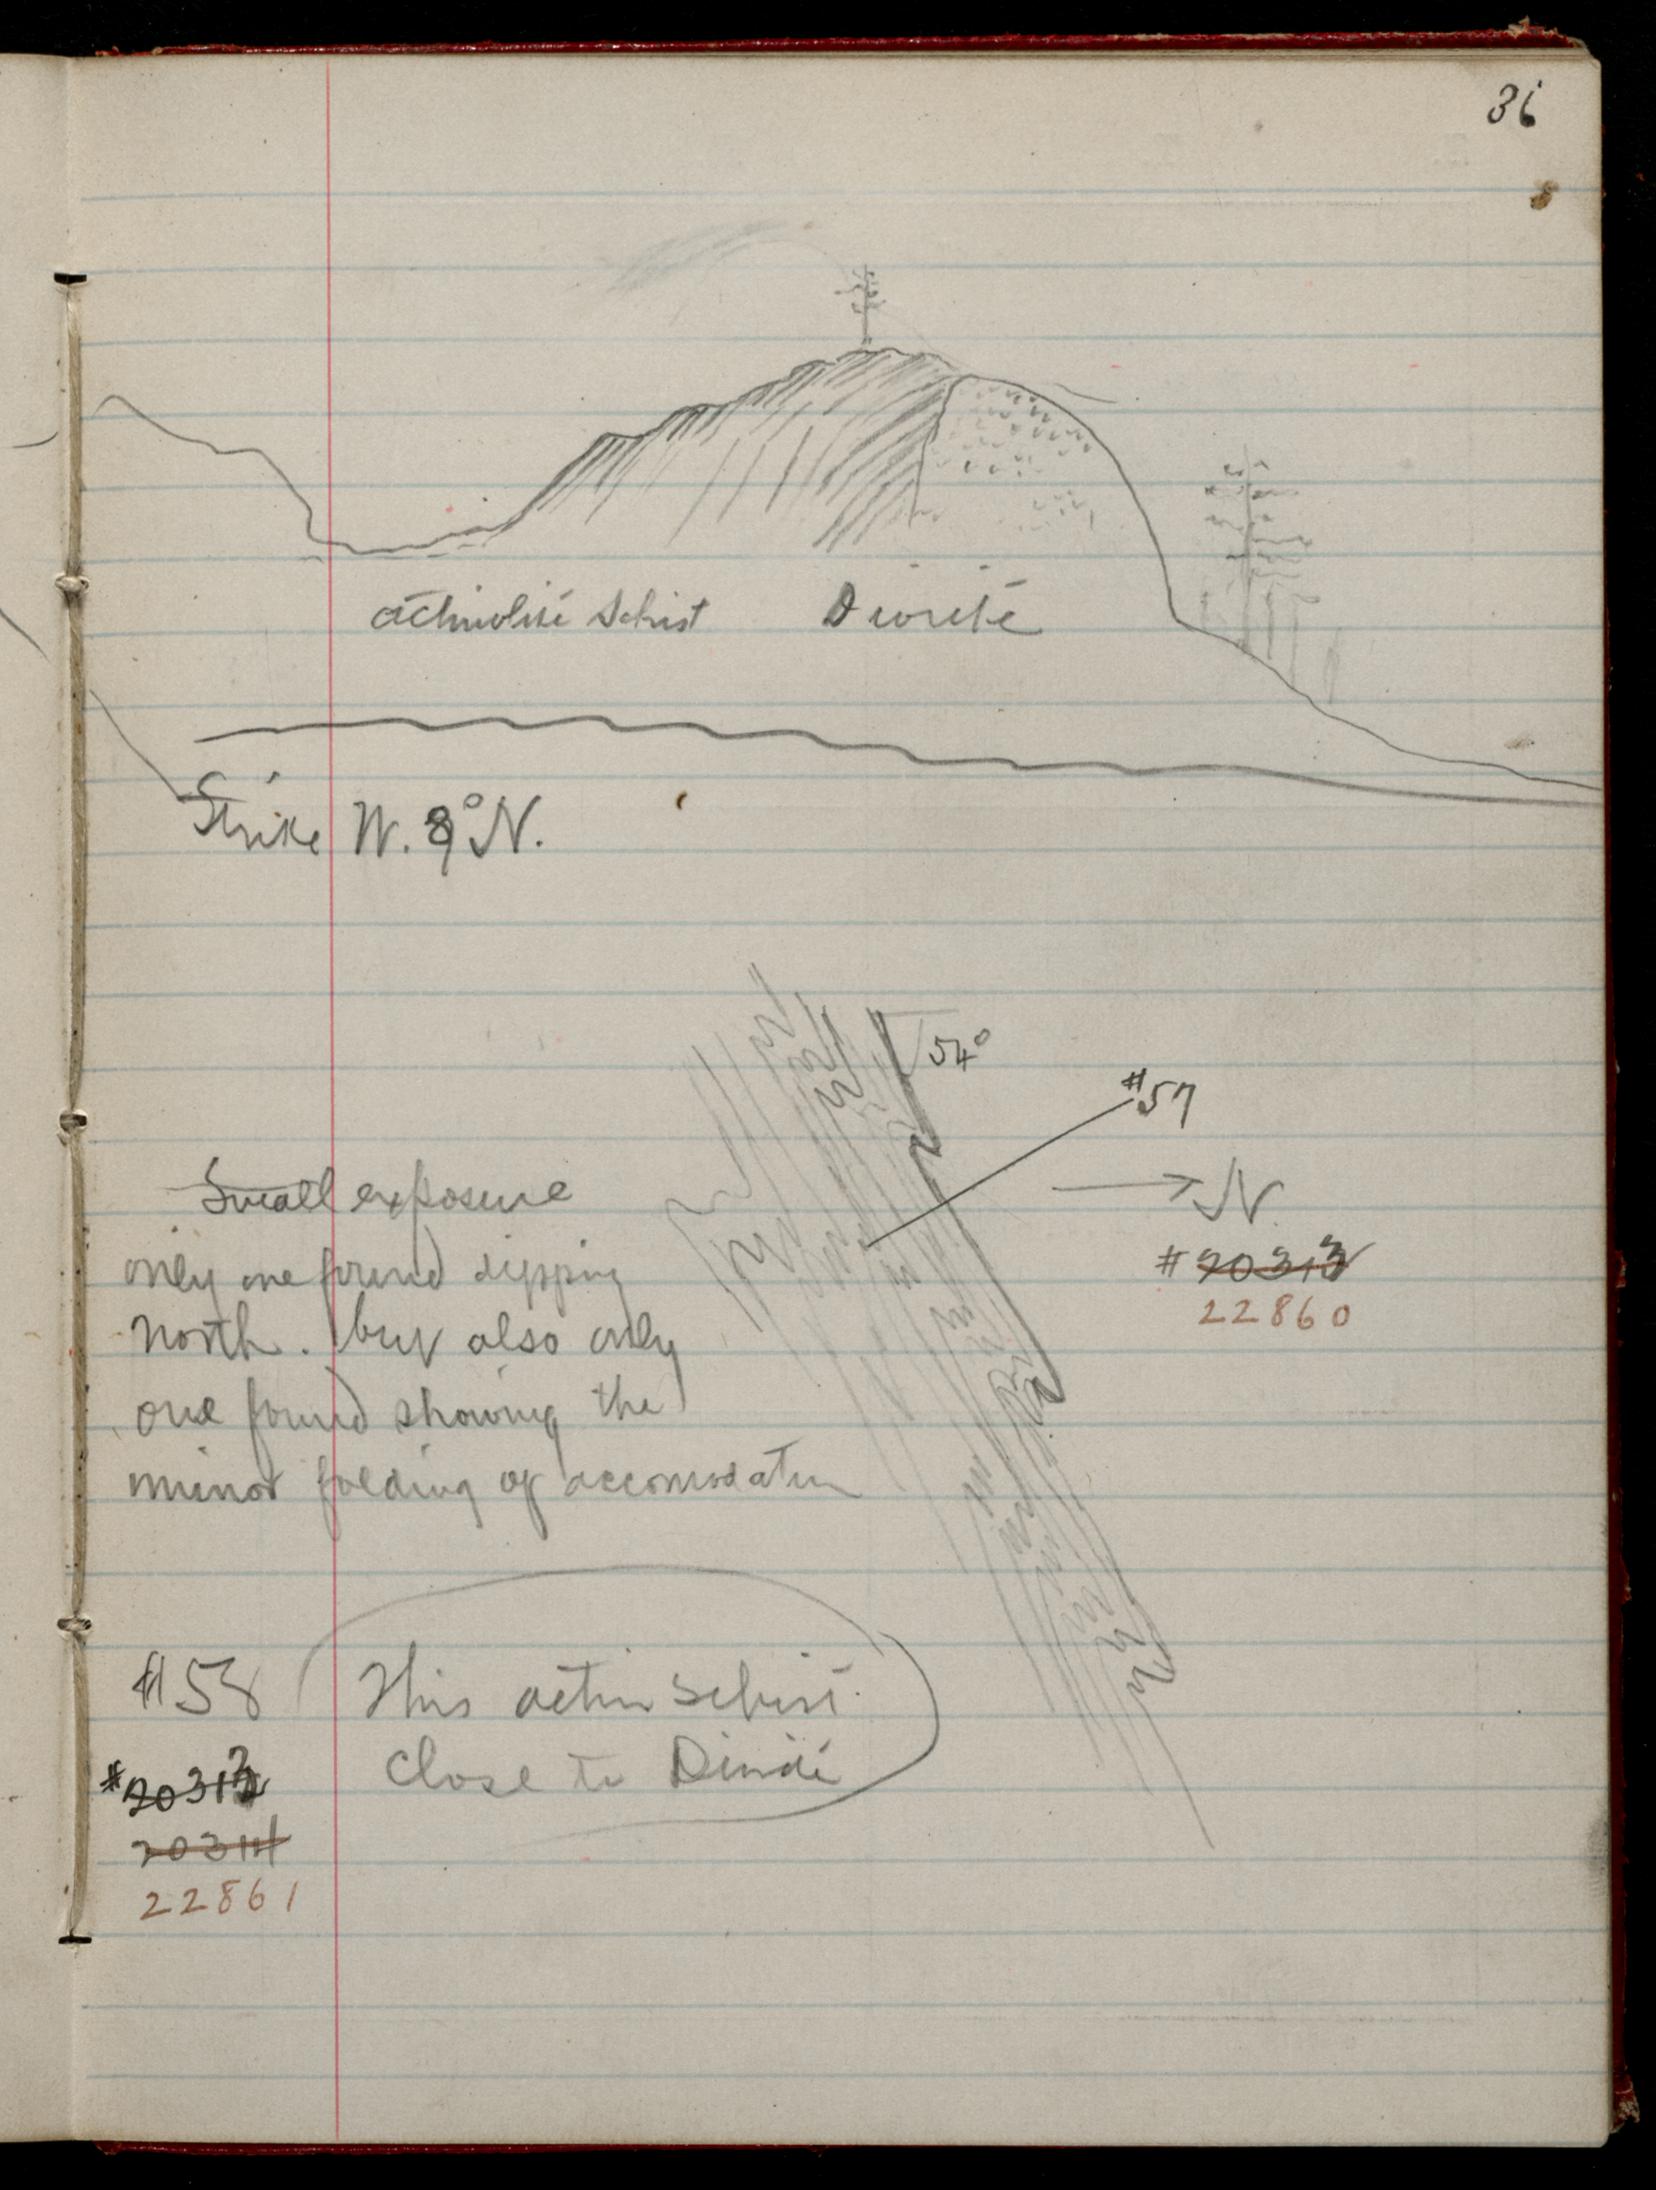 36
actinolite schist Diorite
Strike W. 8° N.
54°
#57
→ N
Small exposure
only one found dipping
north. but also only
one found showing the
minor folding of accomodation
# 20313
22860
#58 This actin schist
close to Diorite
#20313
20314
22861